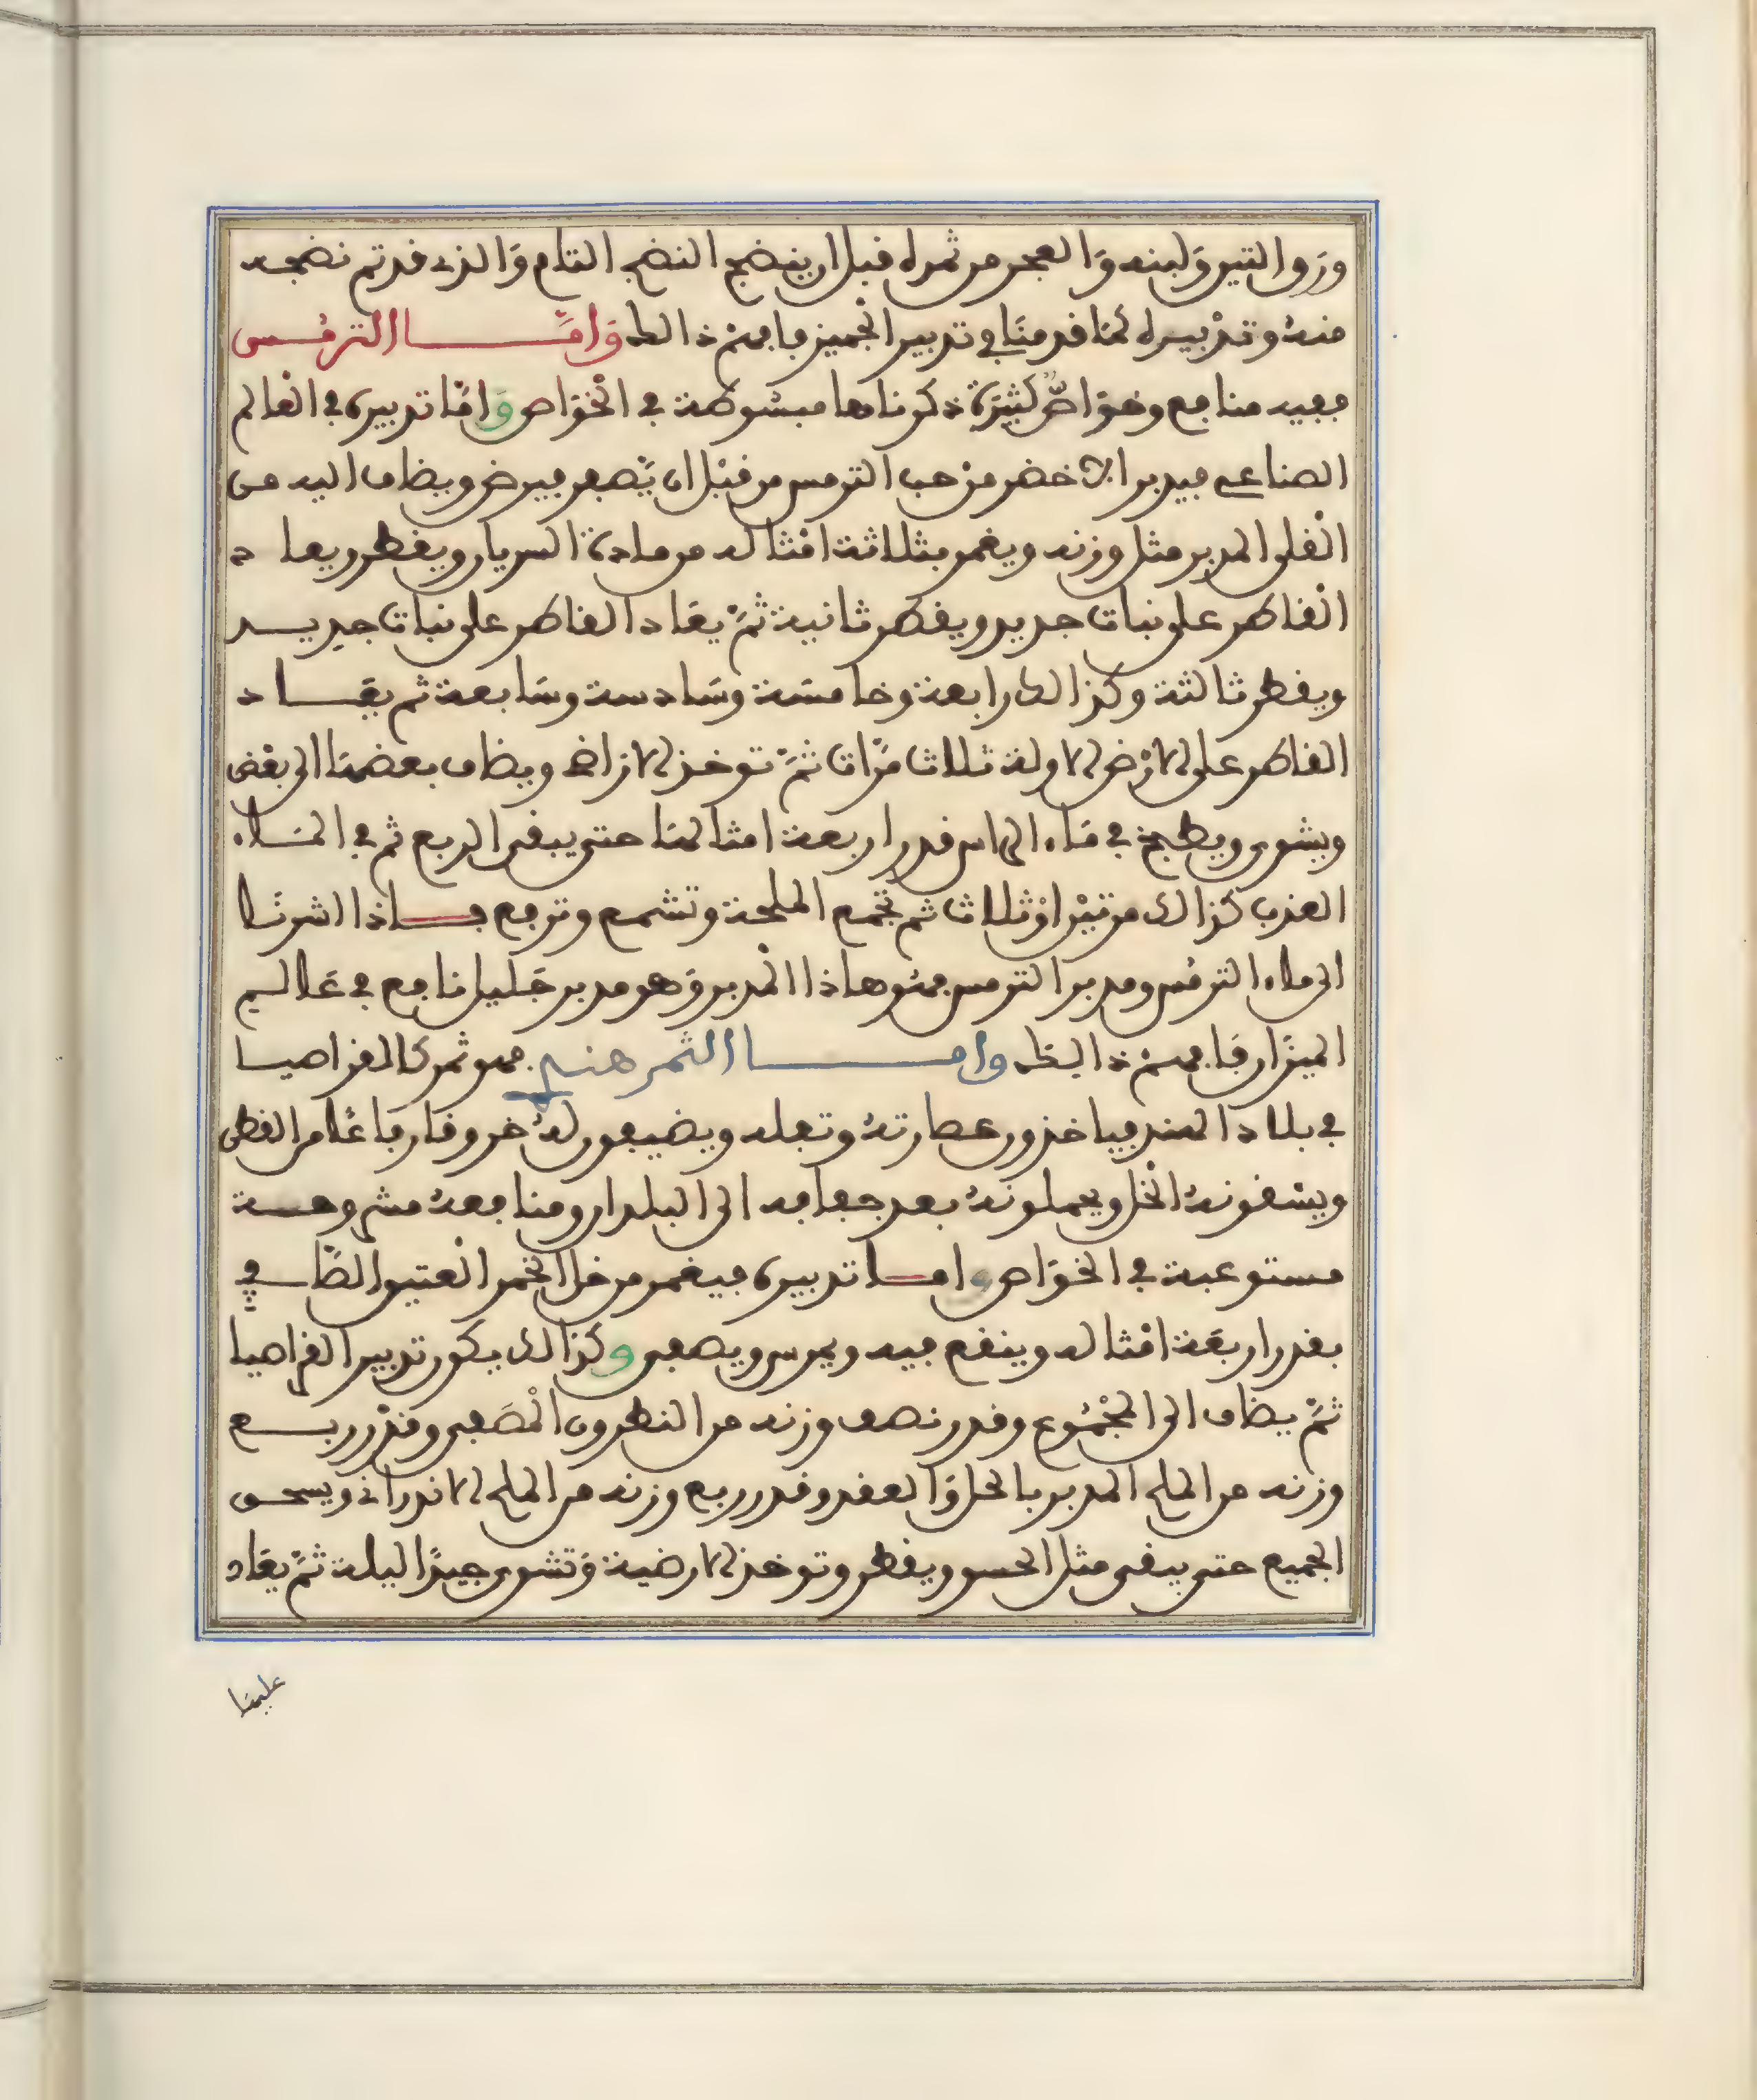 ورق التين ولبنه والعجر من ثمره قبل ان ينضج النضج التام والذي قد تم نضجه
منه وتدبيره كما قدمنا في تدبير الجميز فافهم ذالك وَامَّا الترمُس
ففيه منافع وخوَاصّ كثيرة ذكرناها مبسوطة في الخوَاص وَامَّا تدبيره في العالم
الصناعي فيدبر الاخضر من حب الترمس من قبل ان يَّصفر فيرض ويضاف اليه من
القلى المدبر مثل وزنه ويغمر بثلاثة امثاله من مادة السريار ويقطر ويعاد
القاطر على نبات جديد ويقطر ثانية ثمّ يعَاد القاطر على نبات جديد
ويقطر ثالثة وكذالك رابعة وخامسَة وسَادسة وسَابعة ثم يعَاد
القاطر على الارْض الاولة ثلاث مرَّات ثمّ توخذ الاراضي ويضاف بعضها الى بعْض
ويشوى ويطبخ في مَاء الراس قدر اربعة امثالها حتى يبقى الربع ثم في المَاء
العذب كذالك مرتيْن اوْ ثلاث ثم تجمع الملحة وتشمع وترفع فاذا اشرنا
الى ماء الترمُس ومدبر الترمس فهو هاذا المْدبر وَهو مدبر جَليل نافع في عَالم
الميزَان فَافهم ذالك وامـا الثمر هندي فهو ثمر كالقراصيا
في بلاد الهند فياخذون عصارتهُ وتفله ويضيفون لهُ خروقا رفاعًا من القطن
ويسْقونهُ الخل ويحملونهُ بعد جفافه الى البلدان ومنافعهُ مشروحة
مستوعبة في الخوَاص وامـا تدبيره فيغمر من خل الخمر العتيق الصَّافي
بقدر اربعَة امْثاله وينقع فيه ويمرس ويصفى وكذالك يكون تدبير القراصيا
ثمَّ يضاف الى المجْمُوع وقدر نصف وزنه من النطرون الْمصَفى وقدْر ربع
وزنه من الملح المدبر بالحل وَالعقد وقدر ربع وزنه من الملح الاندراني ويسحق
الجميع حتى يبقى مثل الحسو ويقطر وتوخذ الارضية وَتشوى جيدًا ليلة ثمَّ يعَاد
عليهَا